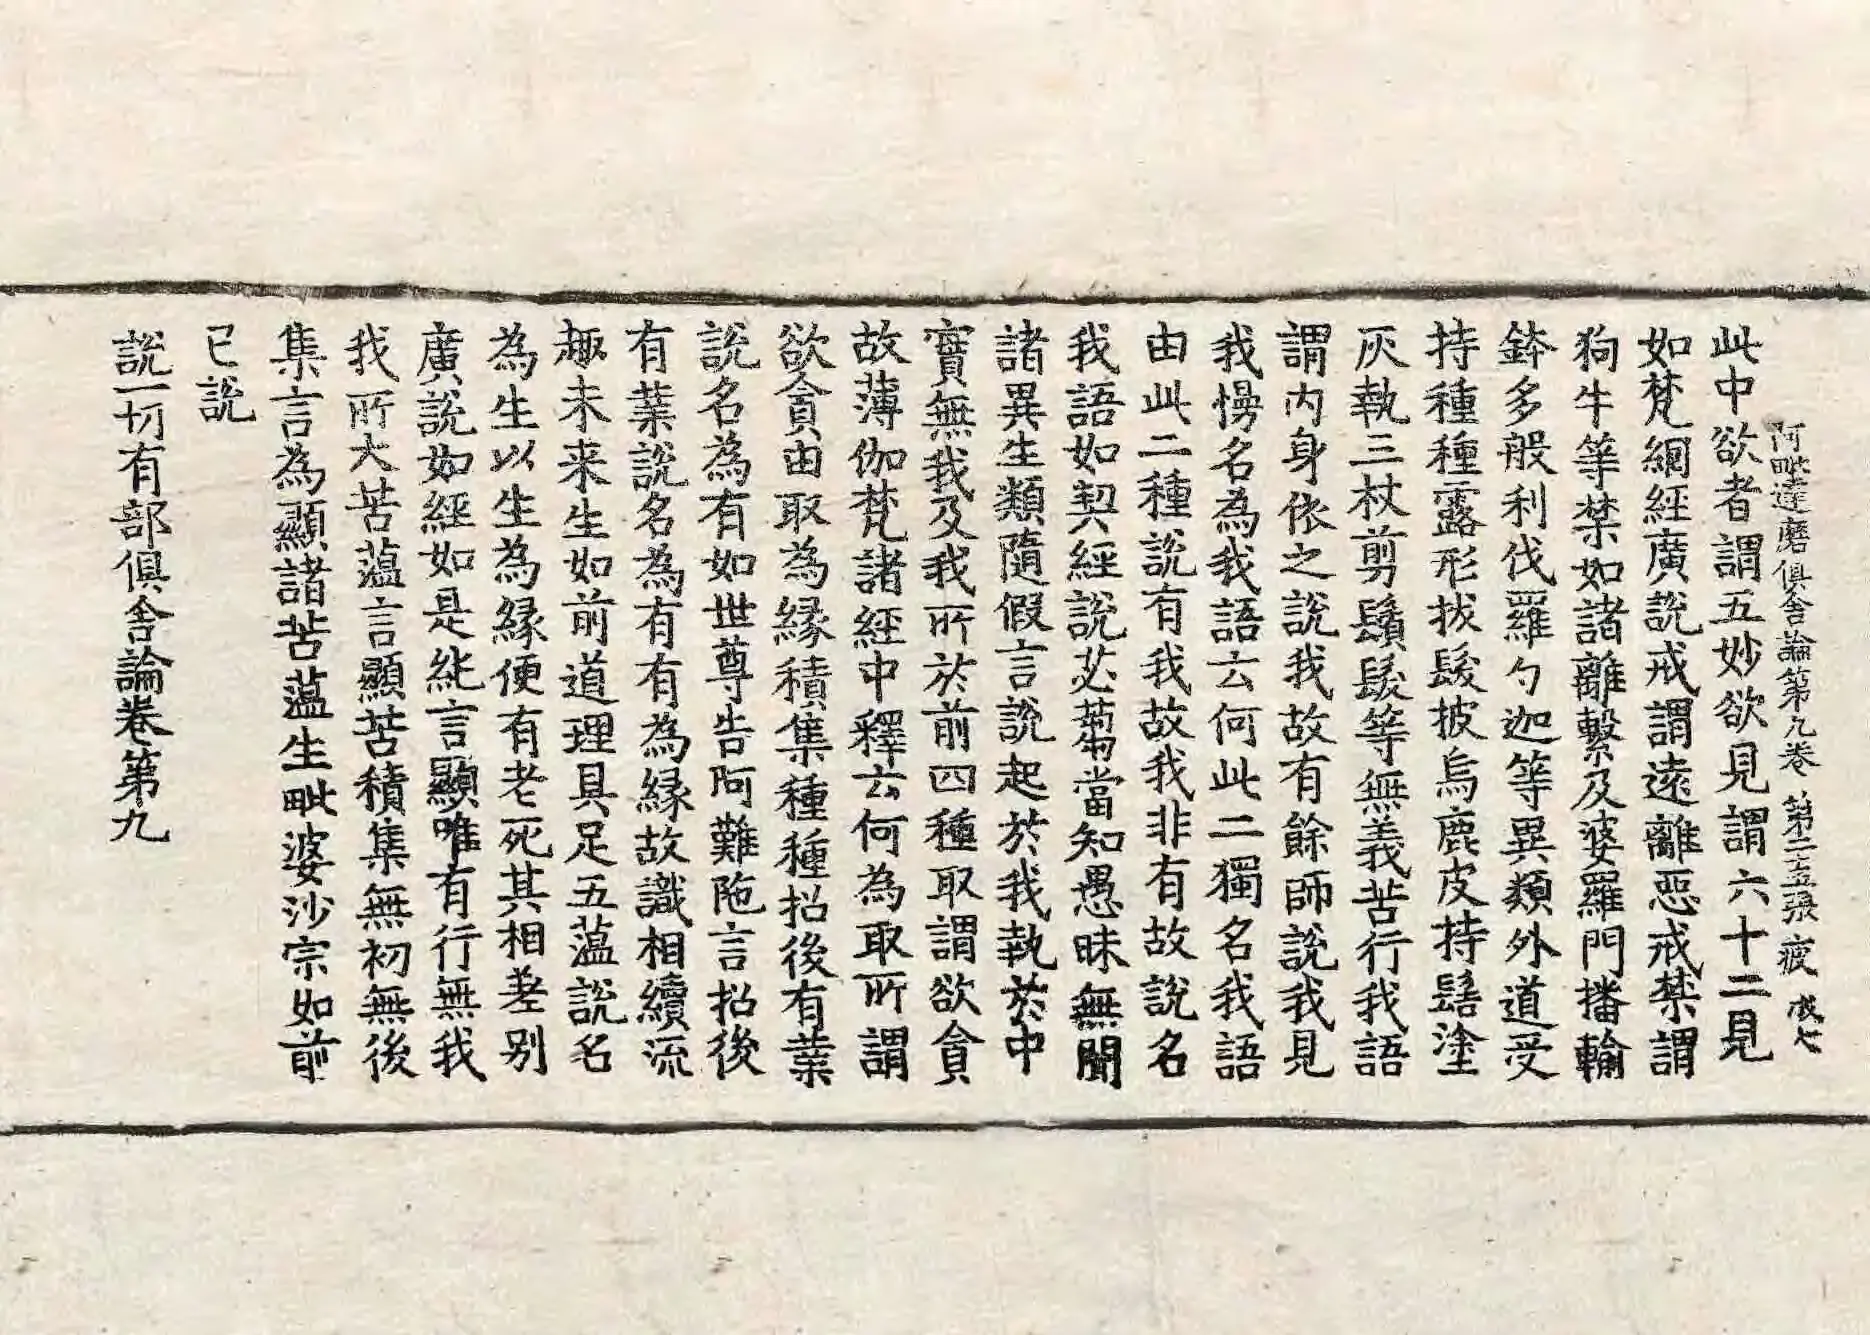 阿毗達磨俱舍論第九卷 第二十五張 疲 成七
此中欲者謂五妙欲見謂六十二見
如梵網經廣說戒謂遠離惡戒禁謂
狗牛等禁如諸離繫及婆羅門播輸
鉢多般利伐羅勺迦等異類外道受
持種種露形拔髮披烏鹿皮持髻塗
灰執三杖剪鬚髮等無義苦行我語
謂內身依之說我故有餘師說我見
我慢名為我語云何此二獨名我語
由此二種說有我故我非有故說名
我語如契經說苾蒭當知愚昧無聞
諸異生類隨假言說起於我執於中
實無我及我所於前四種取謂欲貪
故薄伽梵諸經中釋云何為取所謂
欲貪由取為緣積集種種招後有業
說名為有如世尊告阿難陁言招後
有業說名為有有為緣故識相續流
趣未来生如前道理具足五薀說名
為生以生為緣便有老死其相差別
廣說如經如是純言顯唯有行無我
我所大苦薀言顯苦積集無初無後
集言為顯諸苦薀生毗婆沙宗如前
已說
說一切有部俱舍論卷第九